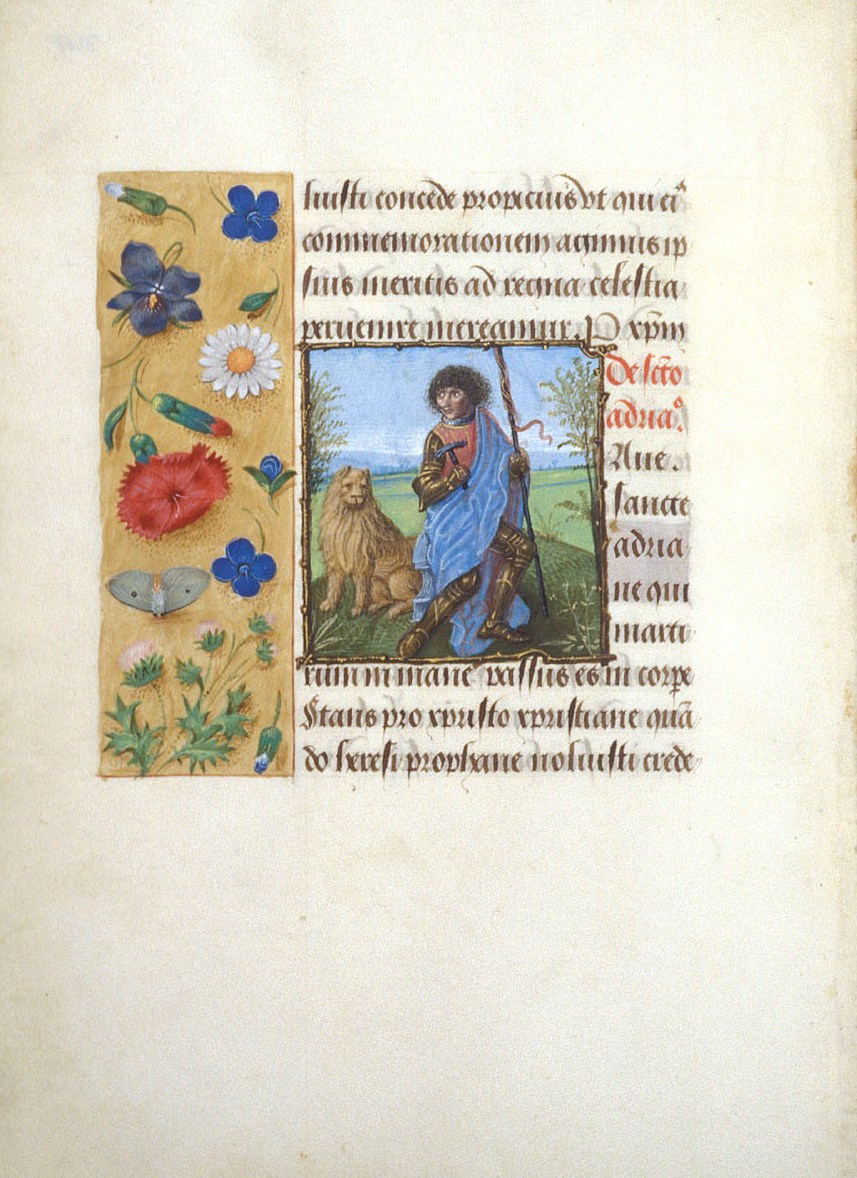 luisti concede propicius vt qui eiꝰ
commemorationem agimus ip
sius meritis ad regna celestia
peruenire mereamur. P xp̄m
De scto
adriaº.
Aue.
sancte
adria
ne qui
marti
rium in mane passus es in corpe
Stans pro xpristo xpristiane quā
do heresi prophane noluisti crede